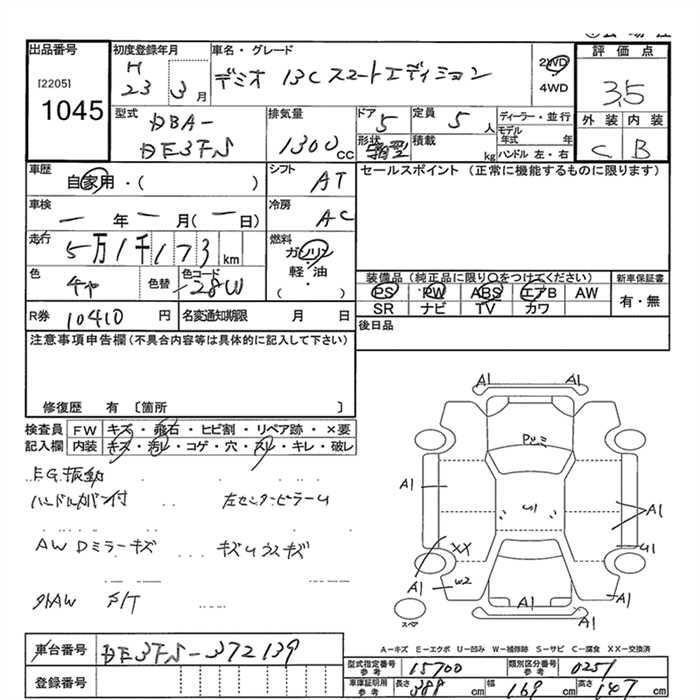 出品番号
[2205]
1045
初度登録年月
H
23 3 月
車名・グレード
デミオ 13C スマートエディション
2WD
4WD
評価点
3.5
外装 内装
C B
型式
DBA-
DE3FS
排気量
1300 CC
ドア
5
形状
定員
5 人
積載
kg
ディーラー・並行
モデル年式 年
ハンドル 左・右
車歴
自家用・( )
シフト
AT
セールスポイント (正常に機能するものに限ります)
車検
一 年 一 月(一日)
冷房
AC
走行
5万1千173 km
燃料
ガソリン
軽・油
( )
色
チャ
色替
色コード
28W
装備品(純正品に限り〇をつけてください)
新車保証書
PS PW ABS エアB AW
SR ナビ TV カワ
有・無
R券 10410 円
名変通知期限 月 日
後日品
注意事項申告欄(不具合内容等は具体的に記入して下さい)
修復歴 有 〔箇所 〕
検査員
記入欄
FW キズ・飛石・ヒビ割・リペア跡・×要
内装 キズ・汚レ・コゲ・穴・スレ・キレ・破レ
EG振動
ハンドルカバー付 左センターピラーU
AW Dミラーキズ
外AW F/T
A1 A1
A1 A1
U1
XX
W2
A1
A1 A1
スペア
A-キズ E-エクボ U-凹み W-補修跡 S-サビ C-腐食 XX-交換済
車台番号 DE3FS-372139
登録番号
型式指定番号
参考
15700
類別区分番号
参考
0251
車庫証明用
参考
長さ 388 cm 幅 169 cm 高さ 147 cm